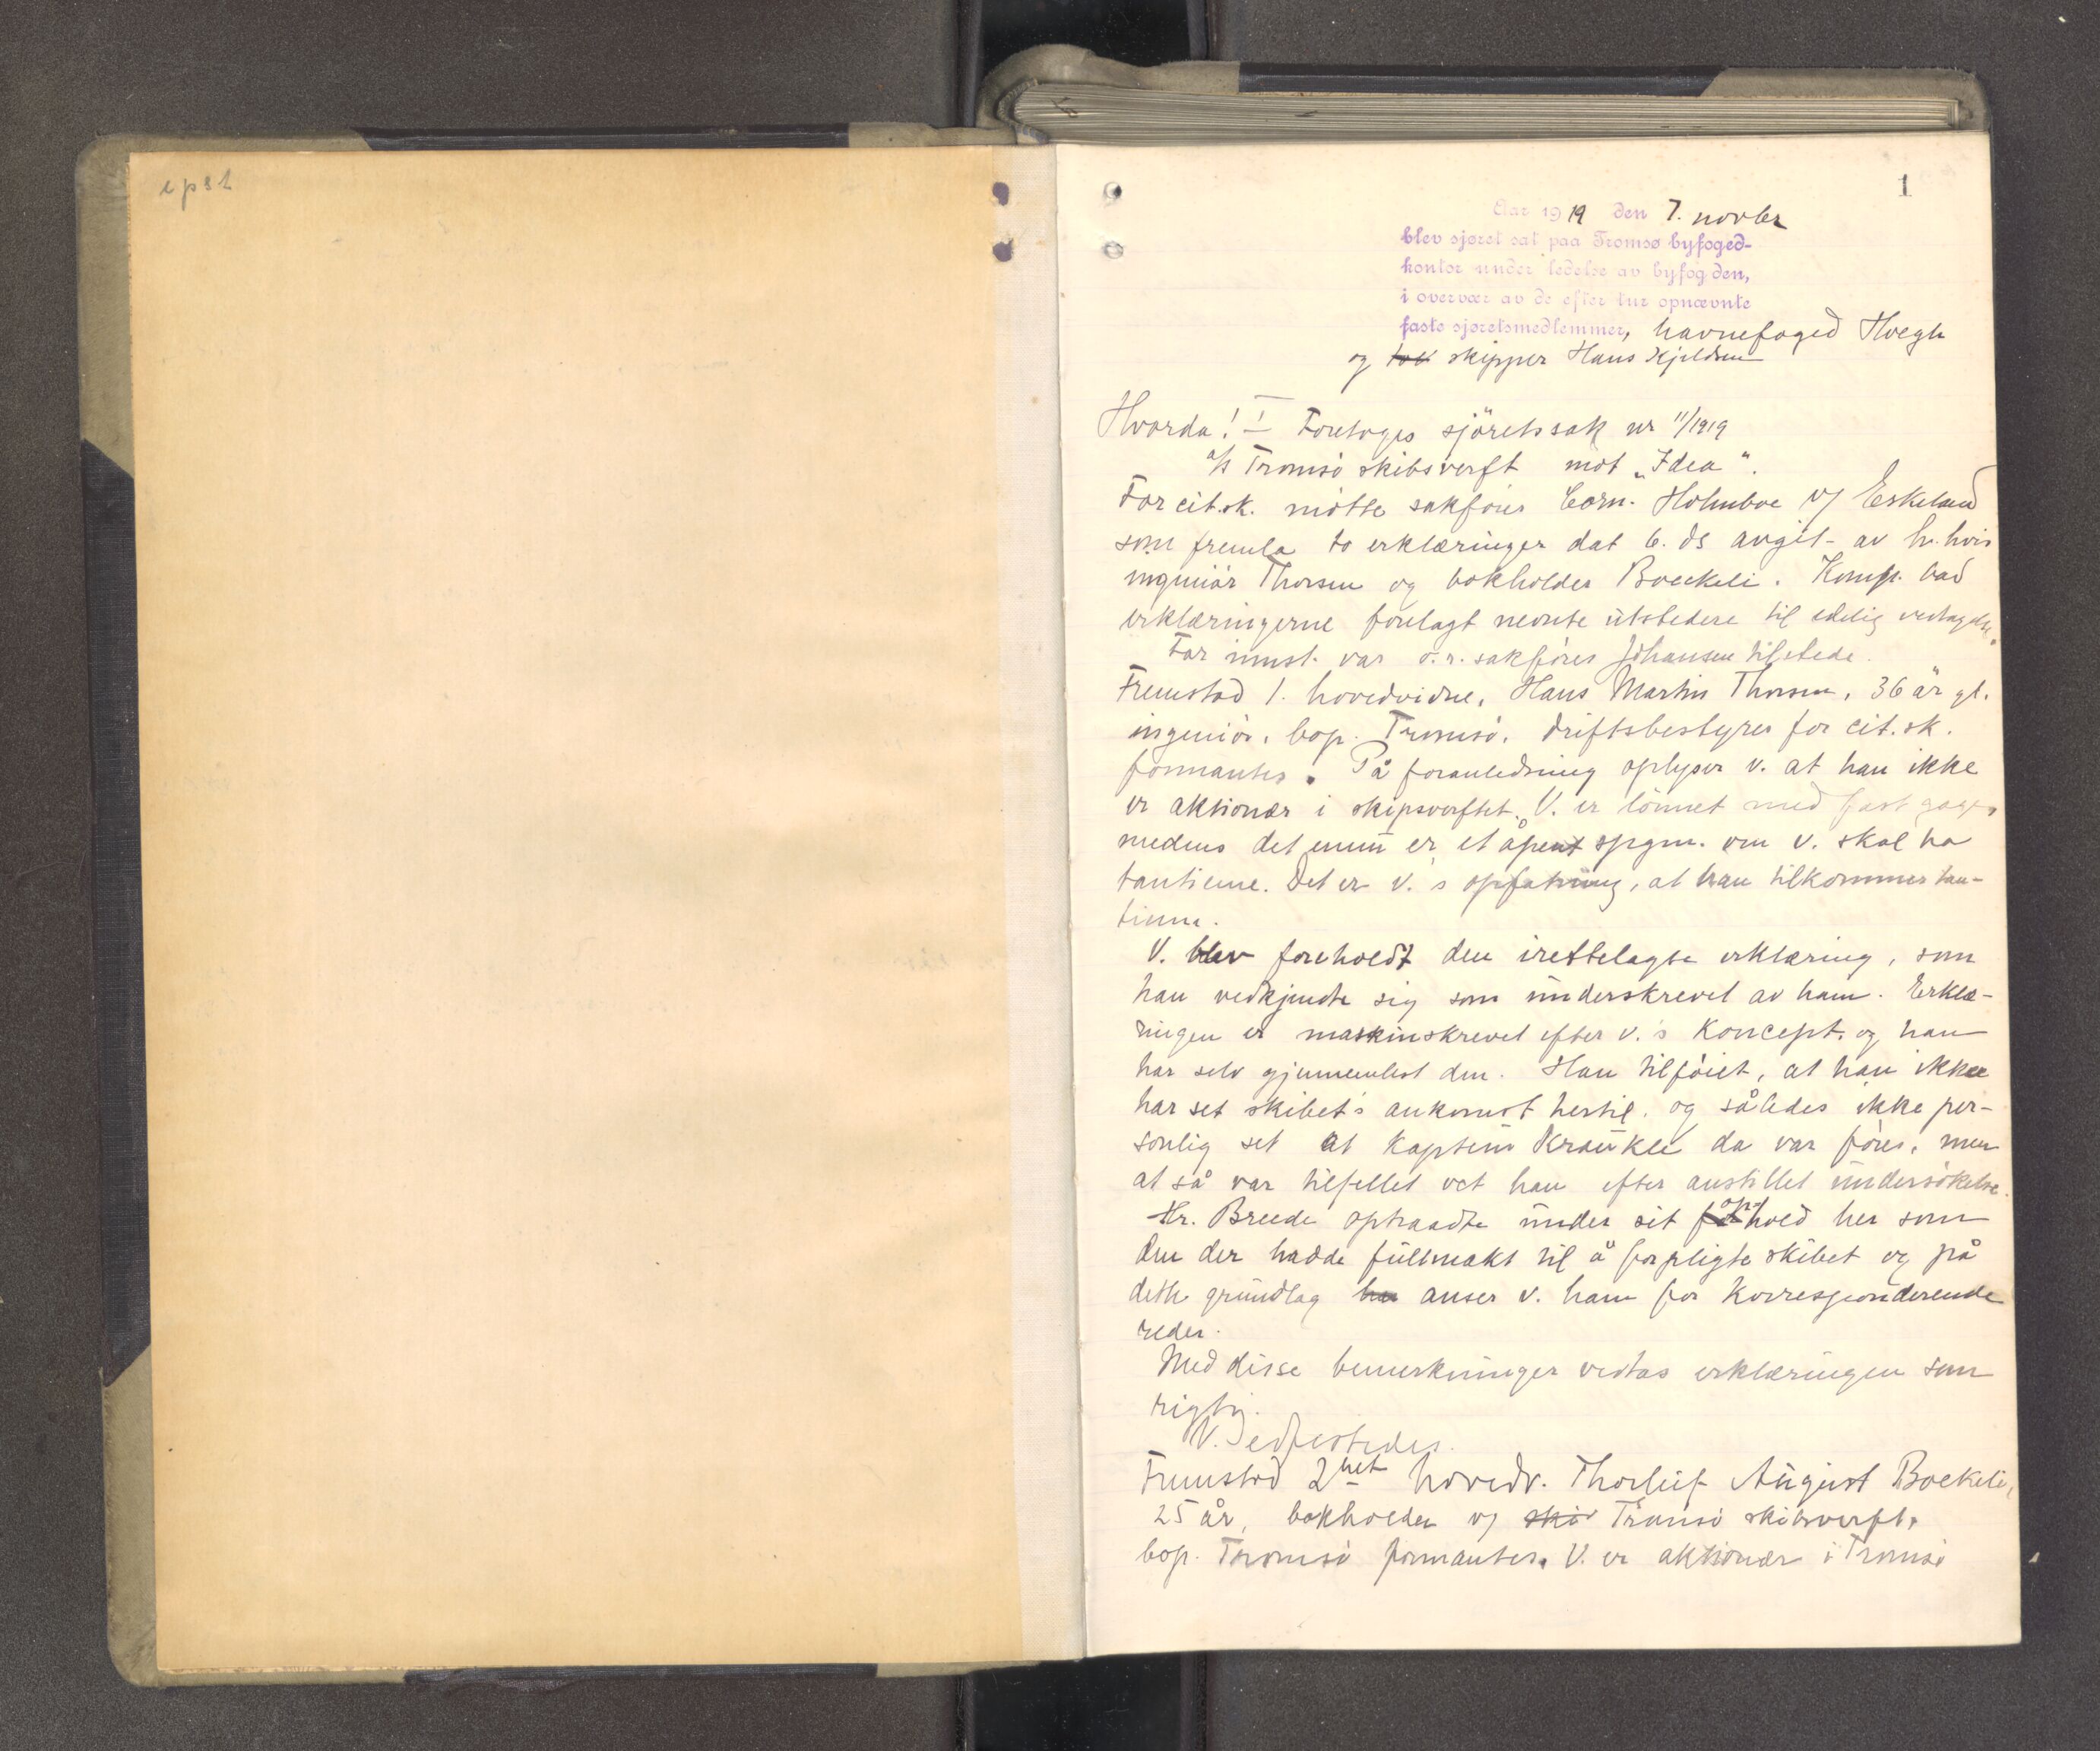 epsl
1
Aar 1919 den 7. novbr
blev sjøret sat paa Tromsø byfoged-
kontor under ledelse av byfogden,
i overvær av de efter tur opnævnte
faste sjøretsmedlemmer, havnefoged Hvegh
og skipper Hans Kjeldsen
Hvorda! I Foretoges sjöretssak nr 11/1919
a/s Tromsö skibsverft mot „Idea".
For cit.sk. mötte sakförer Corn. Holmboe v/ Eskeland
som fremla to erklæringer dat 6. ds avgit av h.hvis
ingeniör Thorsen og bokholder Boeckeli. Komp. bad
erklæringerne forelagt nevnte utstedere til edelig vedtagelse.
For innst. var o.r. sakförer Johansen tilstede.
Fremstod 1. hovedvidne, Hans Martin Thorsen, 36 år gl.
ingeniör, bop. Tromsö, driftsbestyrer for cit.sk.
formantes. På foranledning oplyser v. at han ikke
er aktionær i skipsverftet. V. er lönnet med fast gage,
medens det ennu er et åpent spgm. om v. skal ha
tantieme. Det er v.'s opfatning, at han tilkommer tan-
tieme.
V. blev foreholdt den irettelagte erklæring, som
han vedkjendte sig som underskrevet av ham. Erklæ-
ringen er maskinskrevet efter v.'s koncept, og han
har selv gjennemlest den. Han tilföiet, at han ikke
har set skibet's ankomst hertil, og således ikke per-
sonlig set at kaptein Kraukle da var förer, men
at så var tilfellet vet han efter anstillet undersökelse.
Hr. Breede optraadte under sit ophold her som
den der hadde fullmakt til å forpligte skibet og på
dette grundlag anser v. ham for korresponderende
reder.
Med disse bemerkninger vedtas erklæringen som
rigtig.
V. edfestedes.
Fremstod 2net hovedv. Thorleif August Boekeli,
25 år, bokholder v/ Tromsö skibsverft,
bop. Tromsö formantes. V. er aktionær i Tromsö